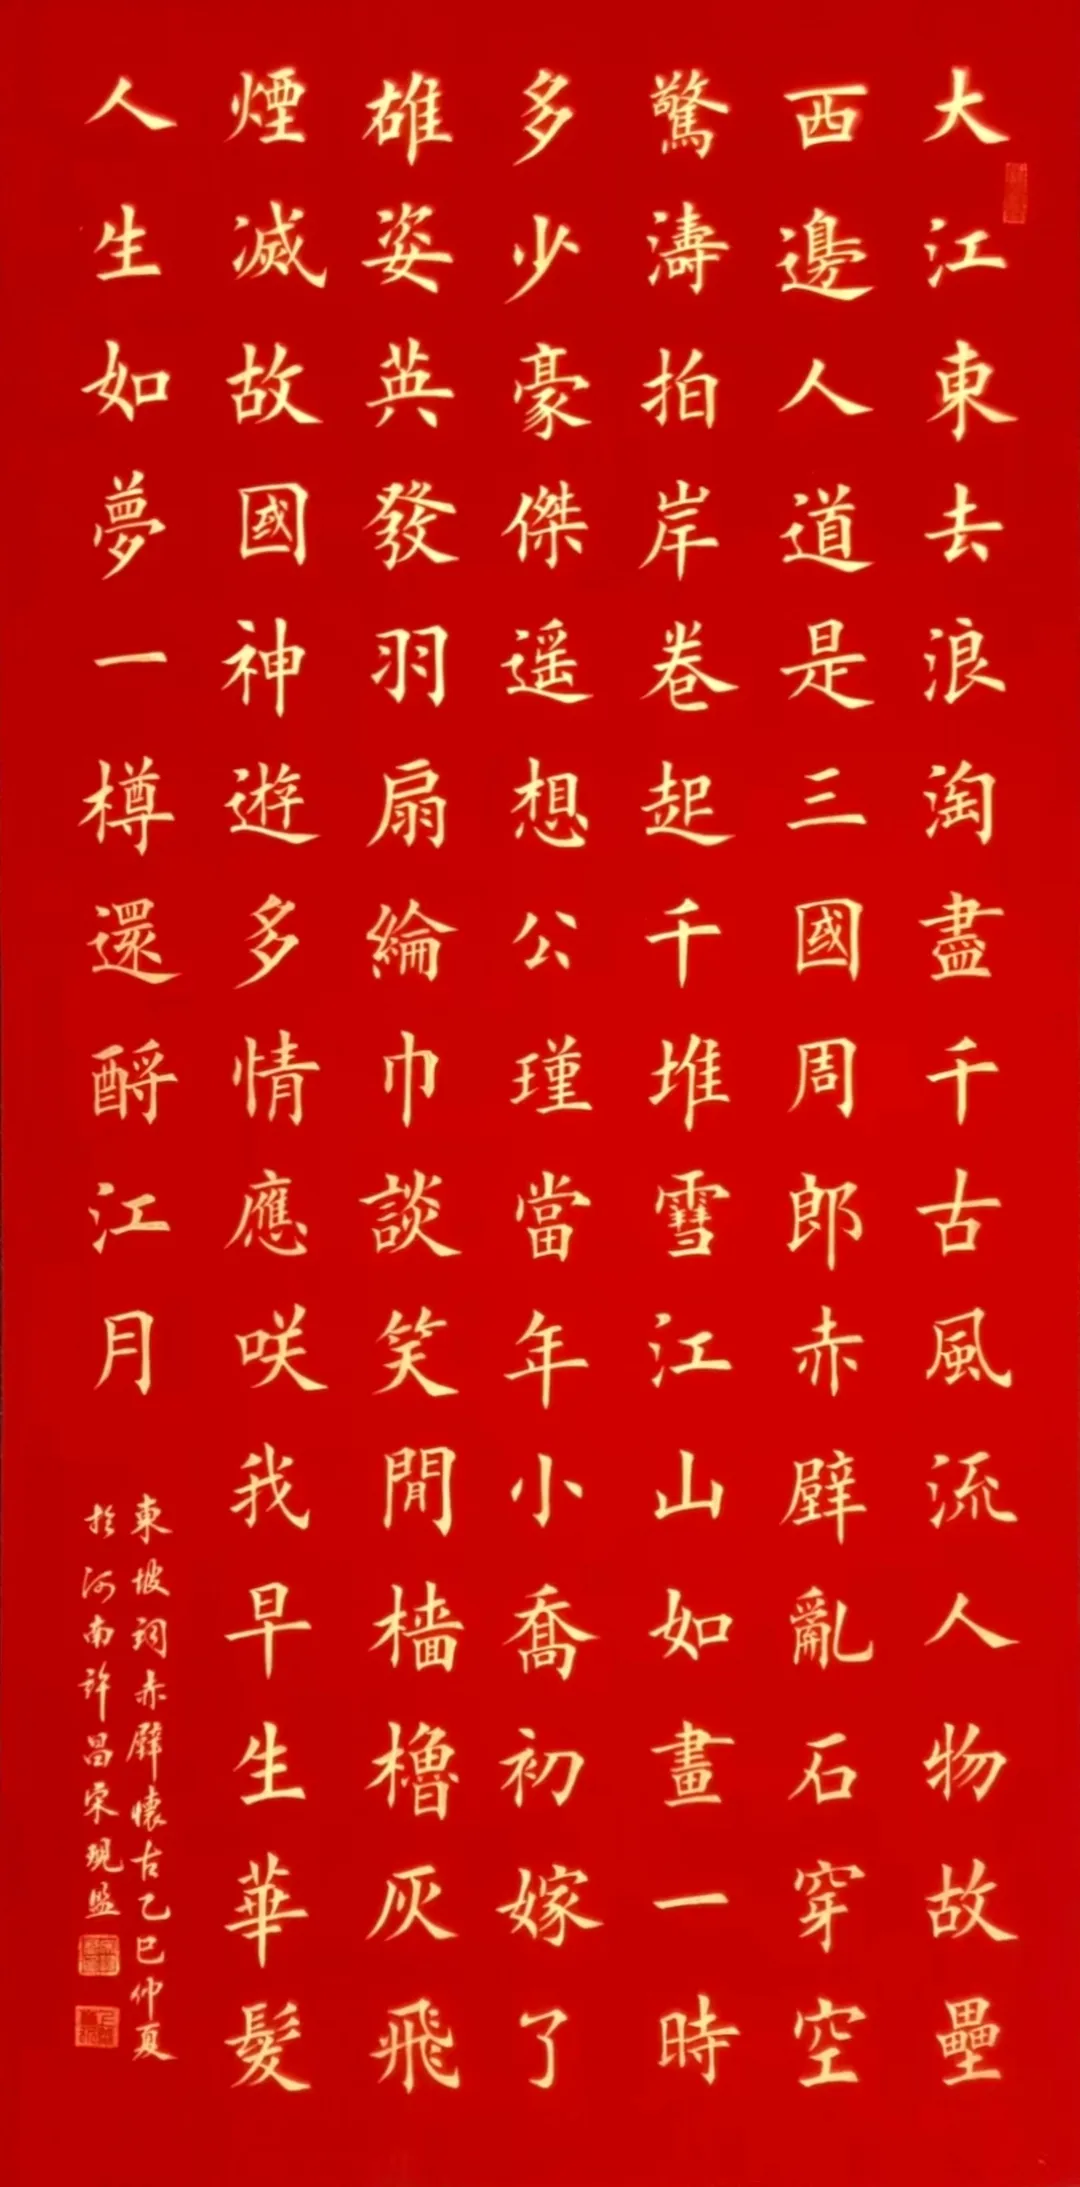 大江東去浪淘盡千古風流人物故壘
西邊人道是三國周郎赤壁亂石穿空
驚濤拍岸卷起千堆雪江山如畫一時
多少豪傑遥想公瑾當年小喬初嫁了
雄姿英發羽扇綸巾談笑間檣櫓灰飛
煙滅故國神遊多情應咲我早生華髮
人生如夢一樽還酹江月
東坡詞赤壁懷古乙巳仲夏
於河南許昌宋現